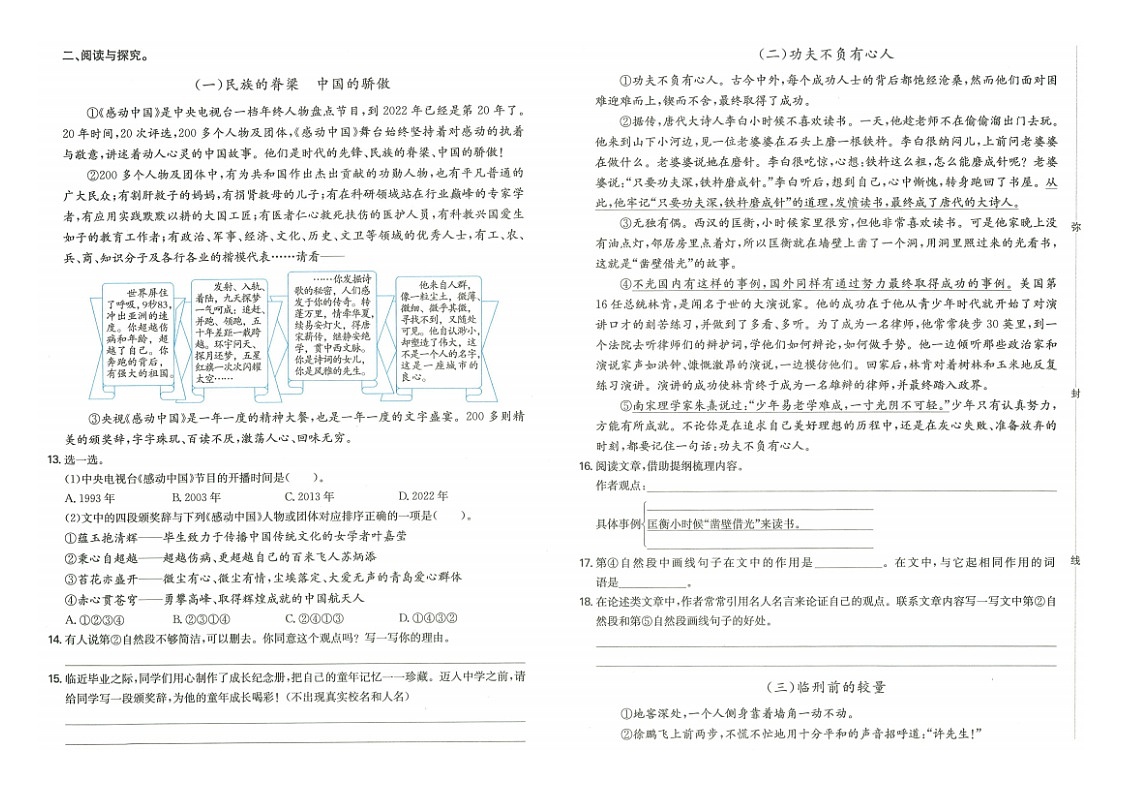 二、阅读与探究。
(一)民族的脊梁　中国的骄傲
①《感动中国》是中央电视台一档年终人物盘点节目,到 2022 年已经是第 20 年了。
20 年时间,20 次评选,200 多个人物及团体,《感动中国》舞台始终坚持着对感动的执着
与敬意,讲述着动人心灵的中国故事。他们是时代的先锋、民族的脊梁、中国的骄傲!
②200 多个人物及团体中,有为共和国作出杰出贡献的功勋人物,也有平凡普通的
广大民众;有割肝救子的妈妈,有捐肾救母的儿子;有在科研领域站在行业巅峰的专家学
者,有应用实践默默以耕的大国工匠;有医者仁心救死扶伤的医护人员,有科教兴国爱生
如子的教育工作者;有政治、军事、经济、文化、历史、文卫等领域的优秀人士,有工、农、
兵、商、知识分子及各行各业的楷模代表……请看——
世界屏住
了呼吸,9秒83,
冲出亚洲的速
度。你超越伤
病和年龄,超
越了自己。你
奔跑的背后,
有强大的祖国。
发射、入轨、
着陆,九天探梦
一气呵成;追赶、
并跑、领跑,五
十年差距一载跨
越。环宇问天、
探月还梦,五星
红旗一次次闪耀
太空……
……你发掘诗
歌的秘密,人们感
发于你的传奇。转
蓬万里,情牵华夏,
续易安灯火,得唐
宋薪传,继静安绝
学,贯中西文脉。
你是诗词的女儿,
你是风雅的先生。
他来自人群,
像一粒尘土,微薄、
微细、微乎其微,
寻找不到,又随处
可见。他自认渺小,
却塑造了伟大,这
不是一个人的名字,
这是一座城市的
良心。
③央视《感动中国》是一年一度的精神大餐,也是一年一度的文字盛宴。200 多则精
美的颁奖辞,字字珠玑、百读不厌,激荡人心、回味无穷。
13. 选一选。
(1)中央电视台《感动中国》节目的开播时间是(　　)。
A. 1993 年　B. 2003 年　C. 2013 年　D. 2022 年
(2)文中的四段颁奖辞与下列《感动中国》人物或团体对应排序正确的一项是(　　)。
①蕴玉抱清辉——毕生致力于传播中国传统文化的女学者叶嘉莹
②秉心自超越——超越伤病、更超越自己的百米飞人苏炳添
③苔花亦盛开——微尘有心、微尘有情,尘埃落定、大爱无声的青岛爱心群体
④赤心贯苍穹——勇攀高峰、取得辉煌成就的中国航天人
A. ①②③④　B. ②③①④　C. ②④①③　D. ①④③②
14. 有人说第②自然段不够简洁,可以删去。你同意这个观点吗? 写一写你的理由。
15. 临近毕业之际,同学们用心制作了成长纪念册,把自己的童年记忆一一珍藏。迈人中学之前,请
给同学写一段颁奖辞,为他的童年成长喝彩!(不出现真实校名和人名)
(二)功夫不负有心人
①功夫不负有心人。古今中外,每个成功人士的背后都饱经沧桑,然而他们面对困
难迎难而上,锲而不舍,最终取得了成功。
②据传,唐代大诗人李白小时候不喜欢读书。一天,他趁老师不在偷偷溜出门去玩。
他来到山下小河边,见一位老婆婆在石头上磨一根铁杵。李白很纳闷儿,上前问老婆婆
在做什么。老婆婆说她在磨针。李白很吃惊,心想:铁杵这么粗,怎么能磨成针呢? 老婆
婆说:“只要功夫深,铁杵磨成针。”李白听后,想到自己,心中惭愧,转身跑回了书屋。从
此,他牢记“只要功夫深,铁杵磨成针”的道理,发愤读书,最终成了唐代的大诗人。
③无独有偶。西汉的匡衡,小时候家里很穷,但他非常喜欢读书。可是他家晚上没
有油点灯,邻居房里点着灯,所以匡衡就在墙壁上凿了一个洞,用洞里照过来的光看书,
这就是“凿壁借光”的故事。
④不光国内有这样的事例,国外同样有通过努力最终取得成功的事例。美国第
16 任总统林肯,是闻名于世的大演说家。他的成功在于他从青少年时代就开始了对演
讲口才的刻苦练习,并做到了多看、多听。为了成为一名律师,他常常徒步 30 英里,到一
个法院去听律师们的辩护词,学他们如何辩论,如何做手势。他一边倾听那些政治家和
演说家声如洪钟、慷慨激昂的演说,一边模仿他们。回家后,林肯对着树林和玉米地反复
练习演讲。演讲的成功使林肯终于成为一名雄辩的律师,并最终踏入政界。
⑤南宋理学家朱熹说过:“少年易老学难成,一寸光阴不可轻。”少年只有认真努力,
方能有所成就。不论你是在追求自己美好理想的历程中,还是在灰心失败、准备放弃的
时刻,都要记住一句话:功夫不负有心人。
16. 阅读文章,借助提纲梳理内容。
作者观点:
具体事例 匡衡小时候“凿壁借光”来读书。
17. 第④自然段中画线句子在文中的作用是　　　　。在文中,与它起相同作用的词
语是　　　　。
18. 在论述类文章中,作者常常引用名人名言来论证自己的观点。联系文章内容写一写文中第②自
然段和第⑤自然段画线句子的好处。
(三)临刑前的较量
①地窖深处,一个人侧身靠着墙角一动不动。
②徐鹏飞上前两步,不慌不忙地用十分平和的声音招呼道:“许先生!”
弥
封
线